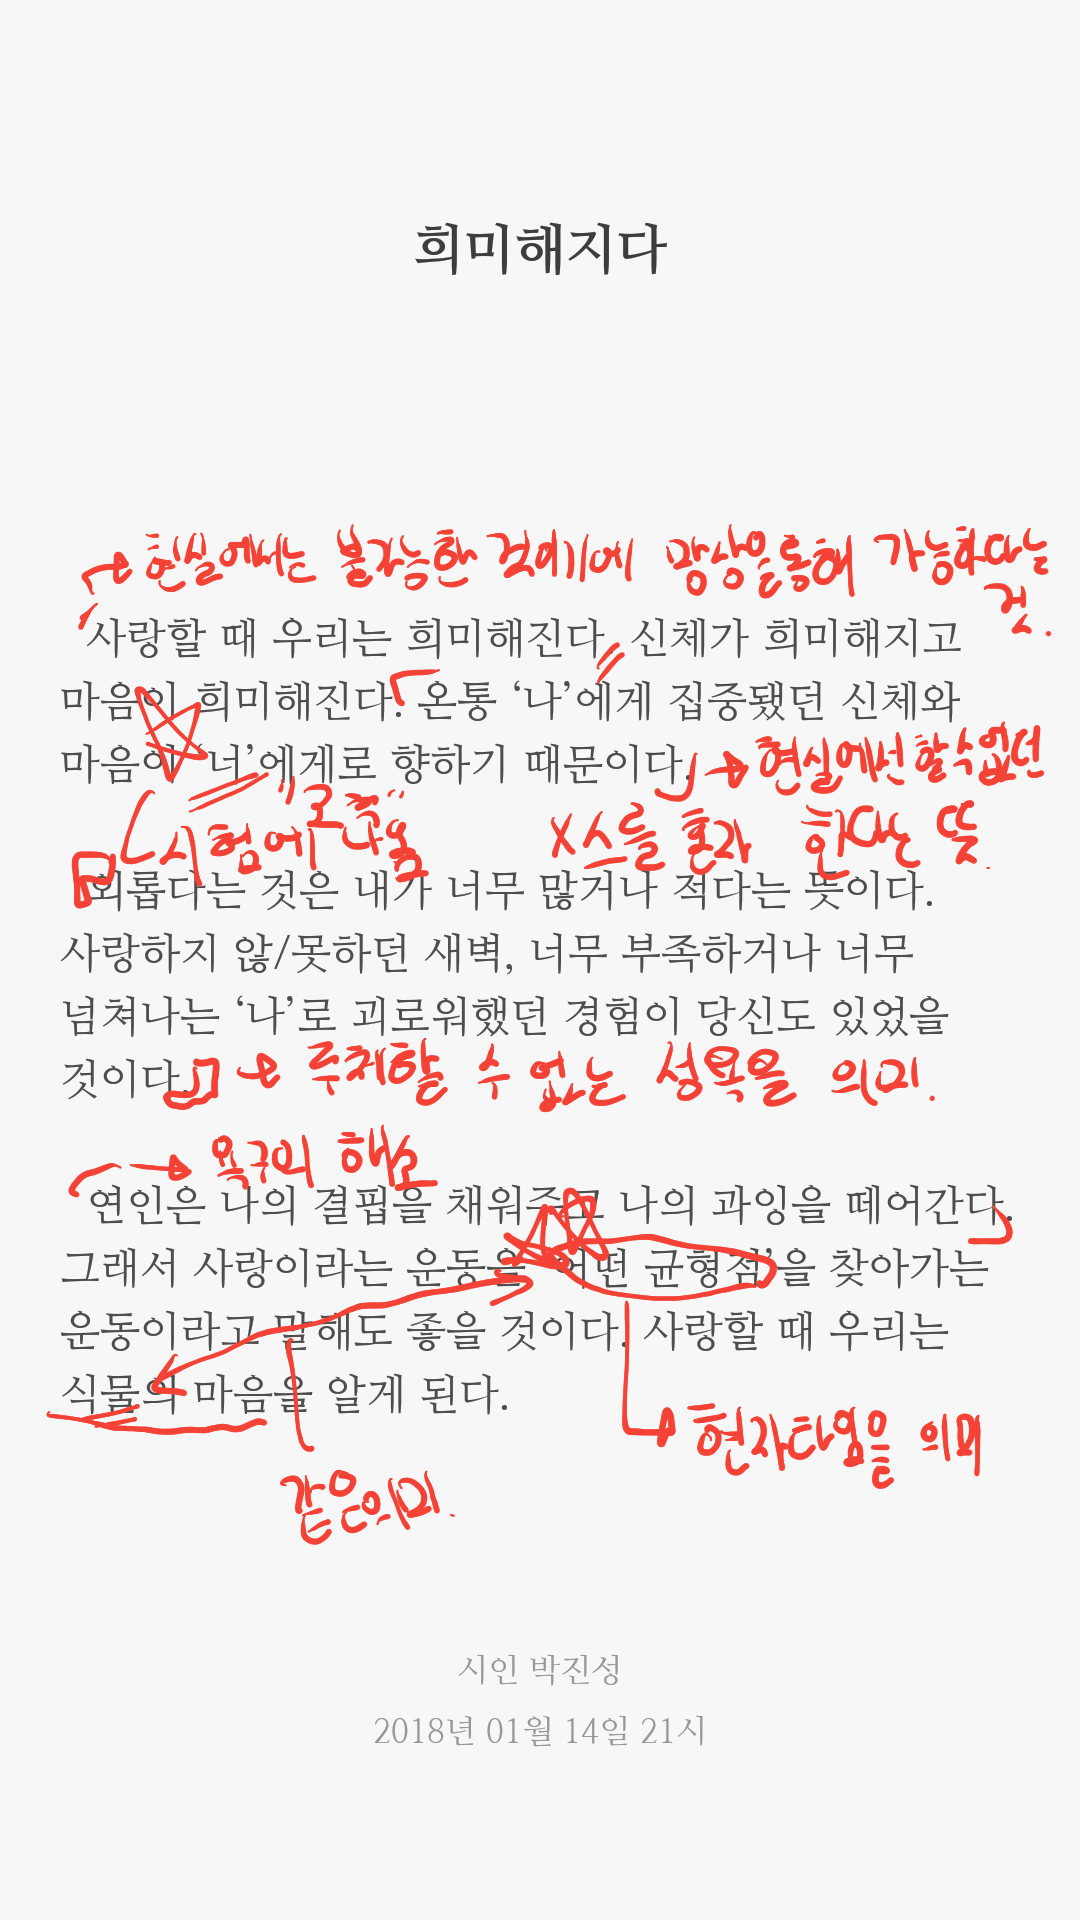 희미해지다
현실에서는 불가능한 것이기에 망상을통해 가능하다는
것.
사랑할 때 우리는 희미해진다. 신체가 희미해지고
마음이 희미해진다. 온통 ‘나’에게 집중됐던 신체와
마음이 ‘너’에게로 향하기 때문이다.
→ 현실에선 할 수 없던
시험에 나옴
X스를 혼자 한다는 뜻.
외롭다는 것은 내가 너무 많거나 적다는 뜻이다.
사랑하지 않/못하던 새벽, 너무 부족하거나 너무
넘쳐나는 ‘나’로 괴로워했던 경험이 당신도 있었을
것이다.
→ 주체할 수 없는 성욕을 의미.
→ 욕구의 해소
연인은 나의 결핍을 채워주고 나의 과잉을 떼어간다.
그래서 사랑이라는 운동을 ‘어떤 균형점’을 찾아가는
운동이라고 말해도 좋을 것이다. 사랑할 때 우리는
식물의 마음을 알게 된다.
현자타임을 의미
같은의미.
시인 박진성
2018년 01월 14일 21시